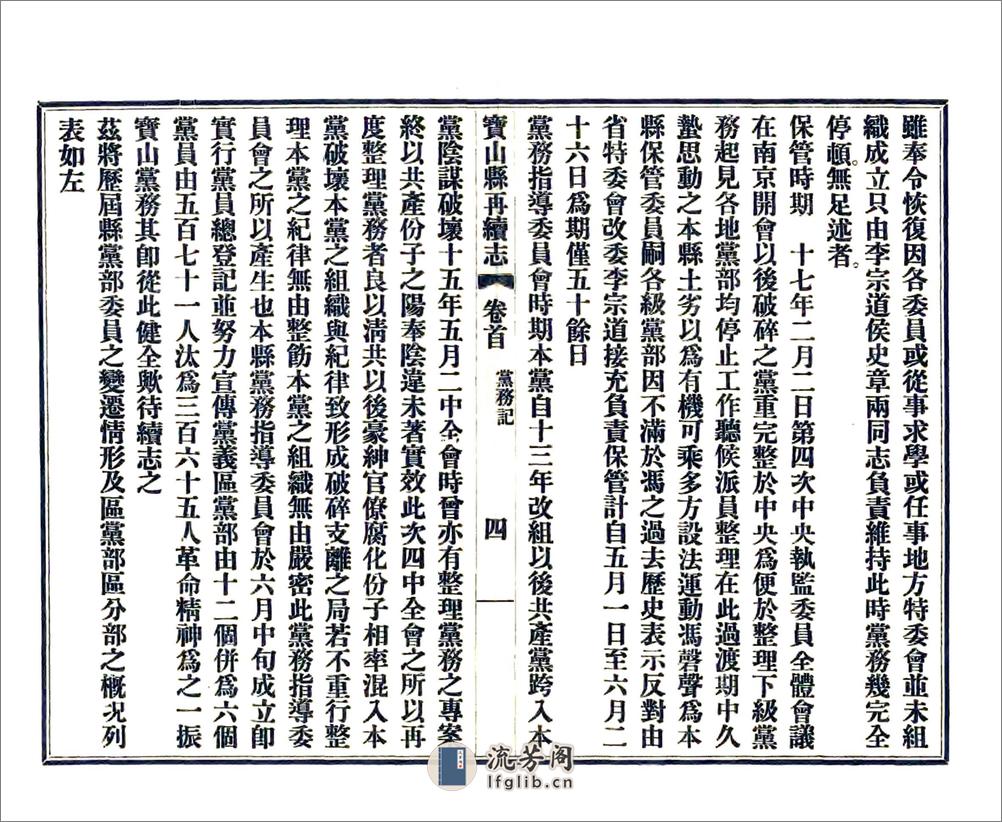 雖奉令恢復因各委員或從事求學或任事地方特委會並未組
織成立只由李宗道侯史章兩同志負責維持此時黨務幾完全
停頓。無足述者。
保管時期　十七年二月二日第四次中央執監委員全體會議
在南京開會以後破碎之黨重完整於中央爲便於整理下級黨
務起見各地黨部均停止工作聽候派員整理在此過渡期中久
蟄思動之本縣土劣以爲有機可乘多方設法運動馮磬聲爲本
縣保管委員嗣各級黨部因不滿於馮之過去歷史表示反對由
省特委會改委李宗道接充負責保管計自五月一日至六月二
十六日爲期僅五十餘日
黨務指導委員會時期本黨自十三年改組以後共產黨跨入本
寶山縣再續志　卷首　黨務記　四
黨陰謀破壞十五年五月二中全會時曾亦有整理黨務之專案
終以共產份子之陽奉陰違未著實效此次四中全會之所以再
度整理黨務者良以淸共以後豪紳官僚腐化份子相率混入本
黨破壞本黨之組織與紀律致形成破碎支離之局若不重行整
理本黨之紀律無由整飭本黨之組織無由嚴密此黨務指導委
員會之所以產生也本縣黨務指導委員會於六月中旬成立卽
實行黨員總登記並努力宣傳黨義區黨部由十二個併爲六個
黨員由五百七十一人汰爲三百六十五人革命精神爲之一振
寶山黨務其卽從此健全歟待續志之
茲將歷屆縣黨部委員之變遷情形及區黨部區分部之概況列
表如左
流芳阁
lfglib.cn